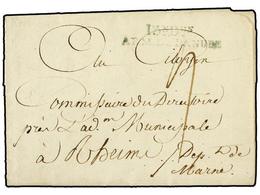 Au Citoyen
Commissaire du Directoire
près L'ad.on Municipale
à Rheims
Dep.t de
Marne.